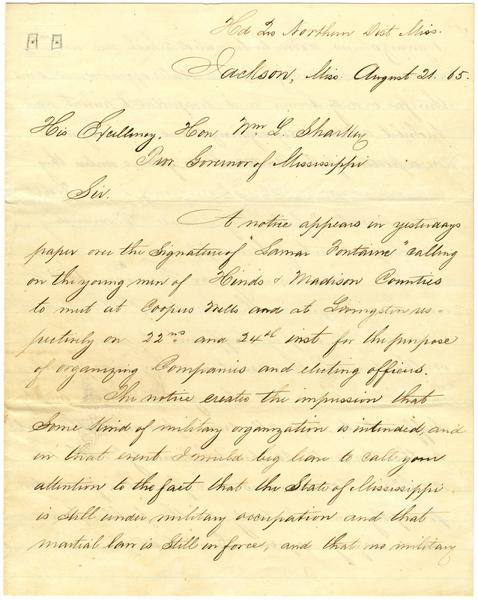 Hd Qrs Northern Dist Miss.
Jackson, Miss August 21. 65.
His Excellency, Hon Wm L. Sharkey
Prov. Governor of Mississippi
Sir.
A notice appears in yesterdays
paper over the Signature of "Lamar Fontaine" calling
on the young men of Hinds & Madison Counties
to meet at Coopers Wells and at Livingston res-
pectively on 22nd and 24th inst for the purpose
of organizing Companies and electing officers.
The notice creates the impression that
Some Kind of military organization is intended, and
in that event I would beg leave to call your
attention to the fact that the State of Mississippi
is still under military occupation and that
martial law is still in force, and that no military